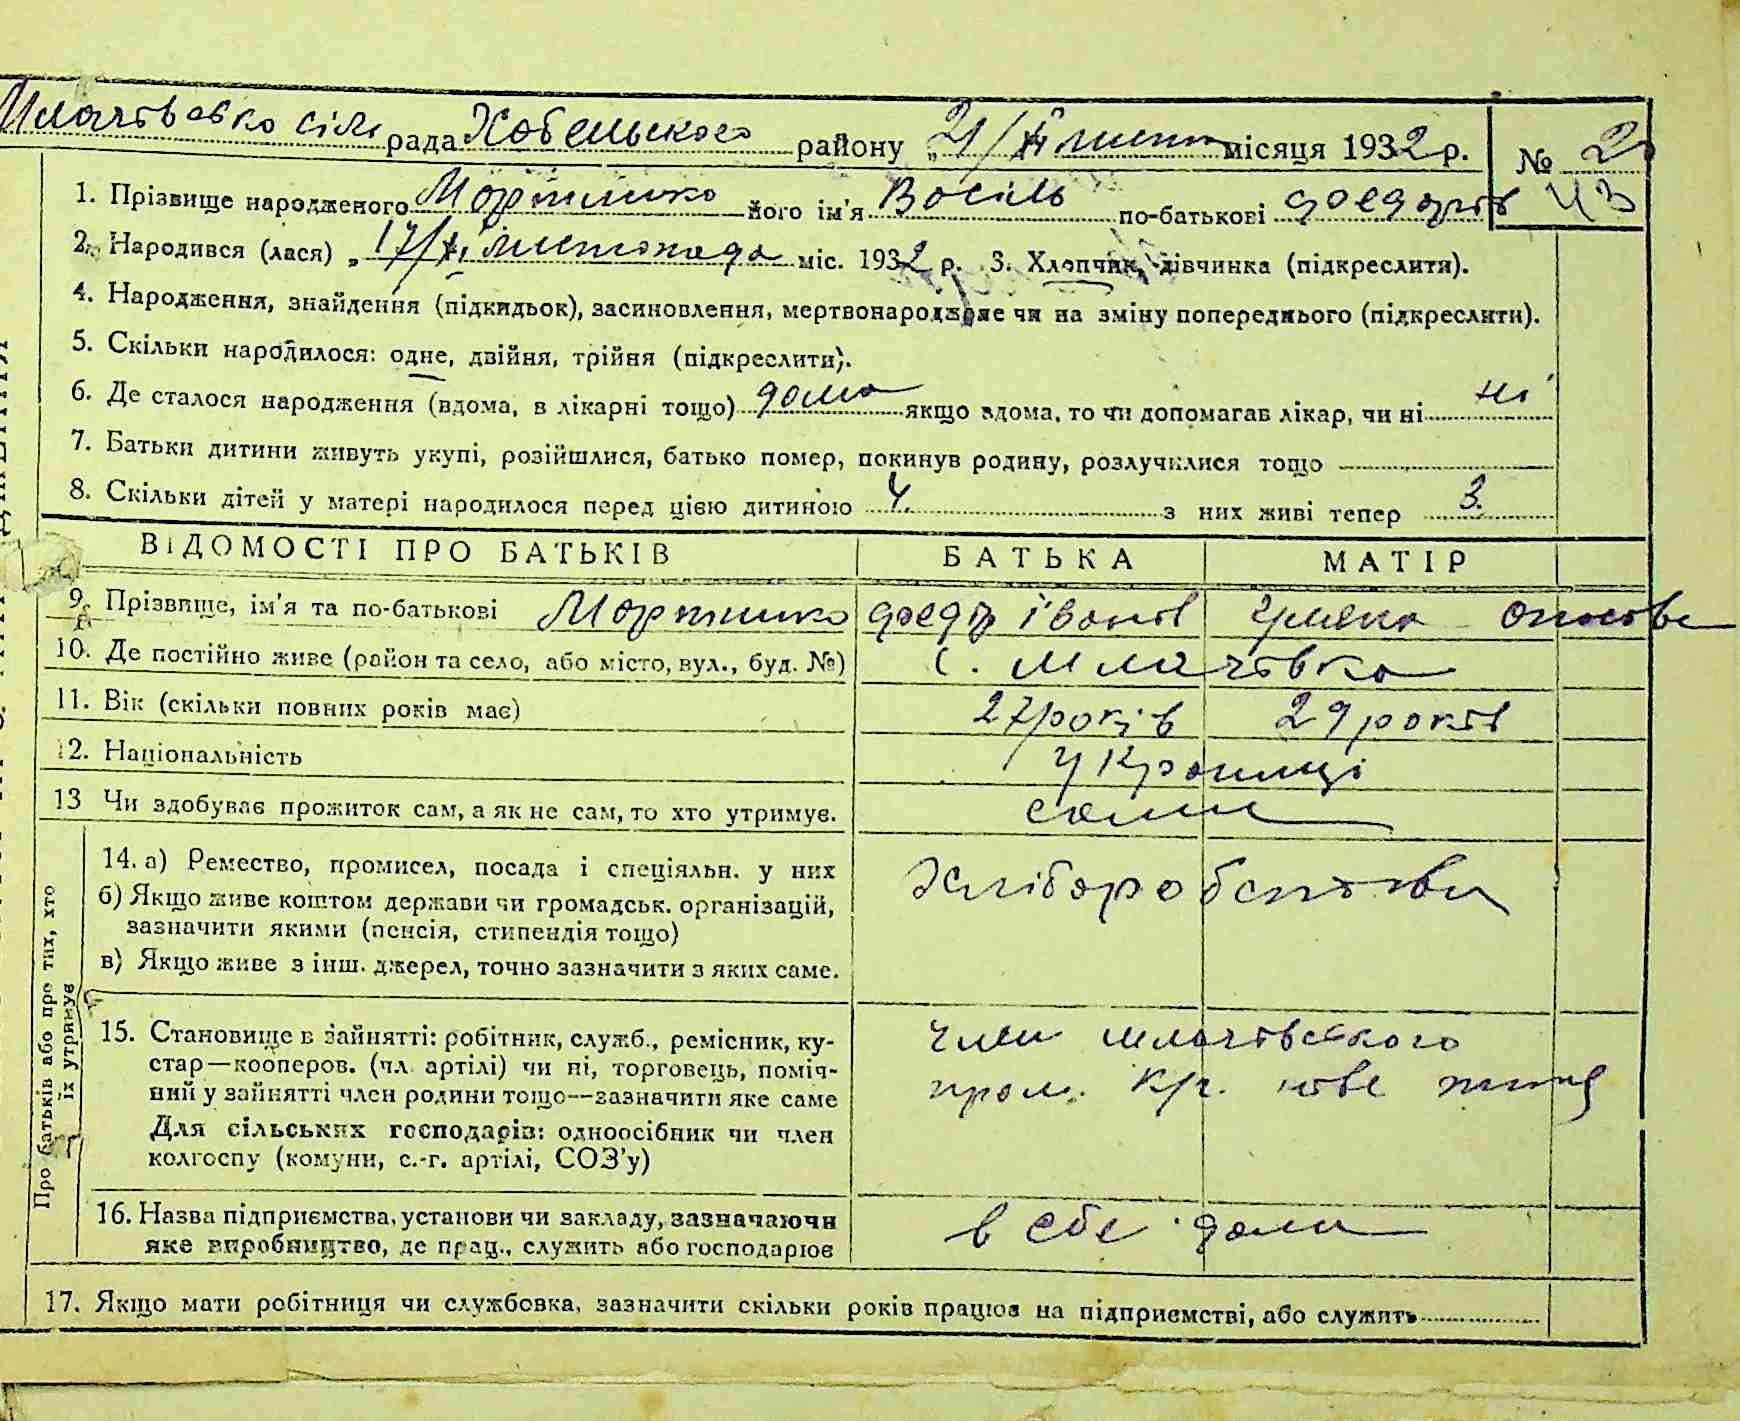 рада Хобельського району „21/XI листоп місяця 1932 р. № 2
1. Прізвище народженого Мартинко його ім'я Васіль по-батькові Федорів 43
2. Народився (лася) „17/XI листопада міс. 1932 р. 3. Хлопчик, дівчинка (підкреслити).
4. Народження, знайдення (підкидьок), засиновлення, мертвонароджене чи на зміну попереднього (підкреслити).
5. Скільки народилося: одне, двійня, трійня (підкреслити).
6. Де сталося народження (вдома, в лікарні тощо) дома якщо вдома, то чи допомагав лікар, чи ні ні
7. Батьки дитини живуть укупі, розійшлися, батько помер, покинув родину, розлучилися тощо
8. Скільки дітей у матері народилося перед цією дитиною 4. з них живі тепер 3.
ВІДОМОСТІ ПРО БАТЬКІВ БАТЬКА МАТІР
9. Прізвище, ім'я та по-батькові Мартинко Федір Іванів
10. Де постійно живе (район та село, або місто, вул., буд. №) с. Млачівка
11. Вік (скільки повних років має) 27 років 29 років
12. Національність Українці
13 Чи здобуває прожиток сам, а як не сам, то хто утримує. сами
Про батьків або про тих, хто їх утримує
14. а) Ремество, промисел, посада і спеціяльн. у них Хліборобством
б) Якщо живе коштом держави чи громадськ. організацій,
зазначити якими (пенсія, стипендія тощо)
в) Якщо живе з інш. джерел, точно зазначити з яких саме.
15. Становище в зайнятті: робітник, служб., ремісник, ку- член млачівського
стар—кооперов. (чл. артілі) чи ні, торговець, поміч-
ний у зайнятті член родини тощо—зазначити яке саме
Для сільських господарів: одноосібник чи член
колгоспу (комуни, с.-г. артілі, СОЗ'у)
16. Назва підприємства, установи чи закладу, зазначаючи в себе дома
яке виробництво, де прац., служить або господарює
17. Якщо мати робітниця чи службовка, зазначити скільки років працює на підприємстві, або служить